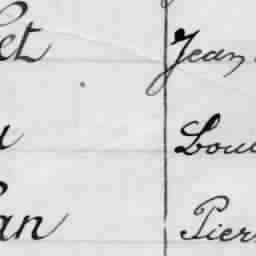 et Jean
Lou
an Pier